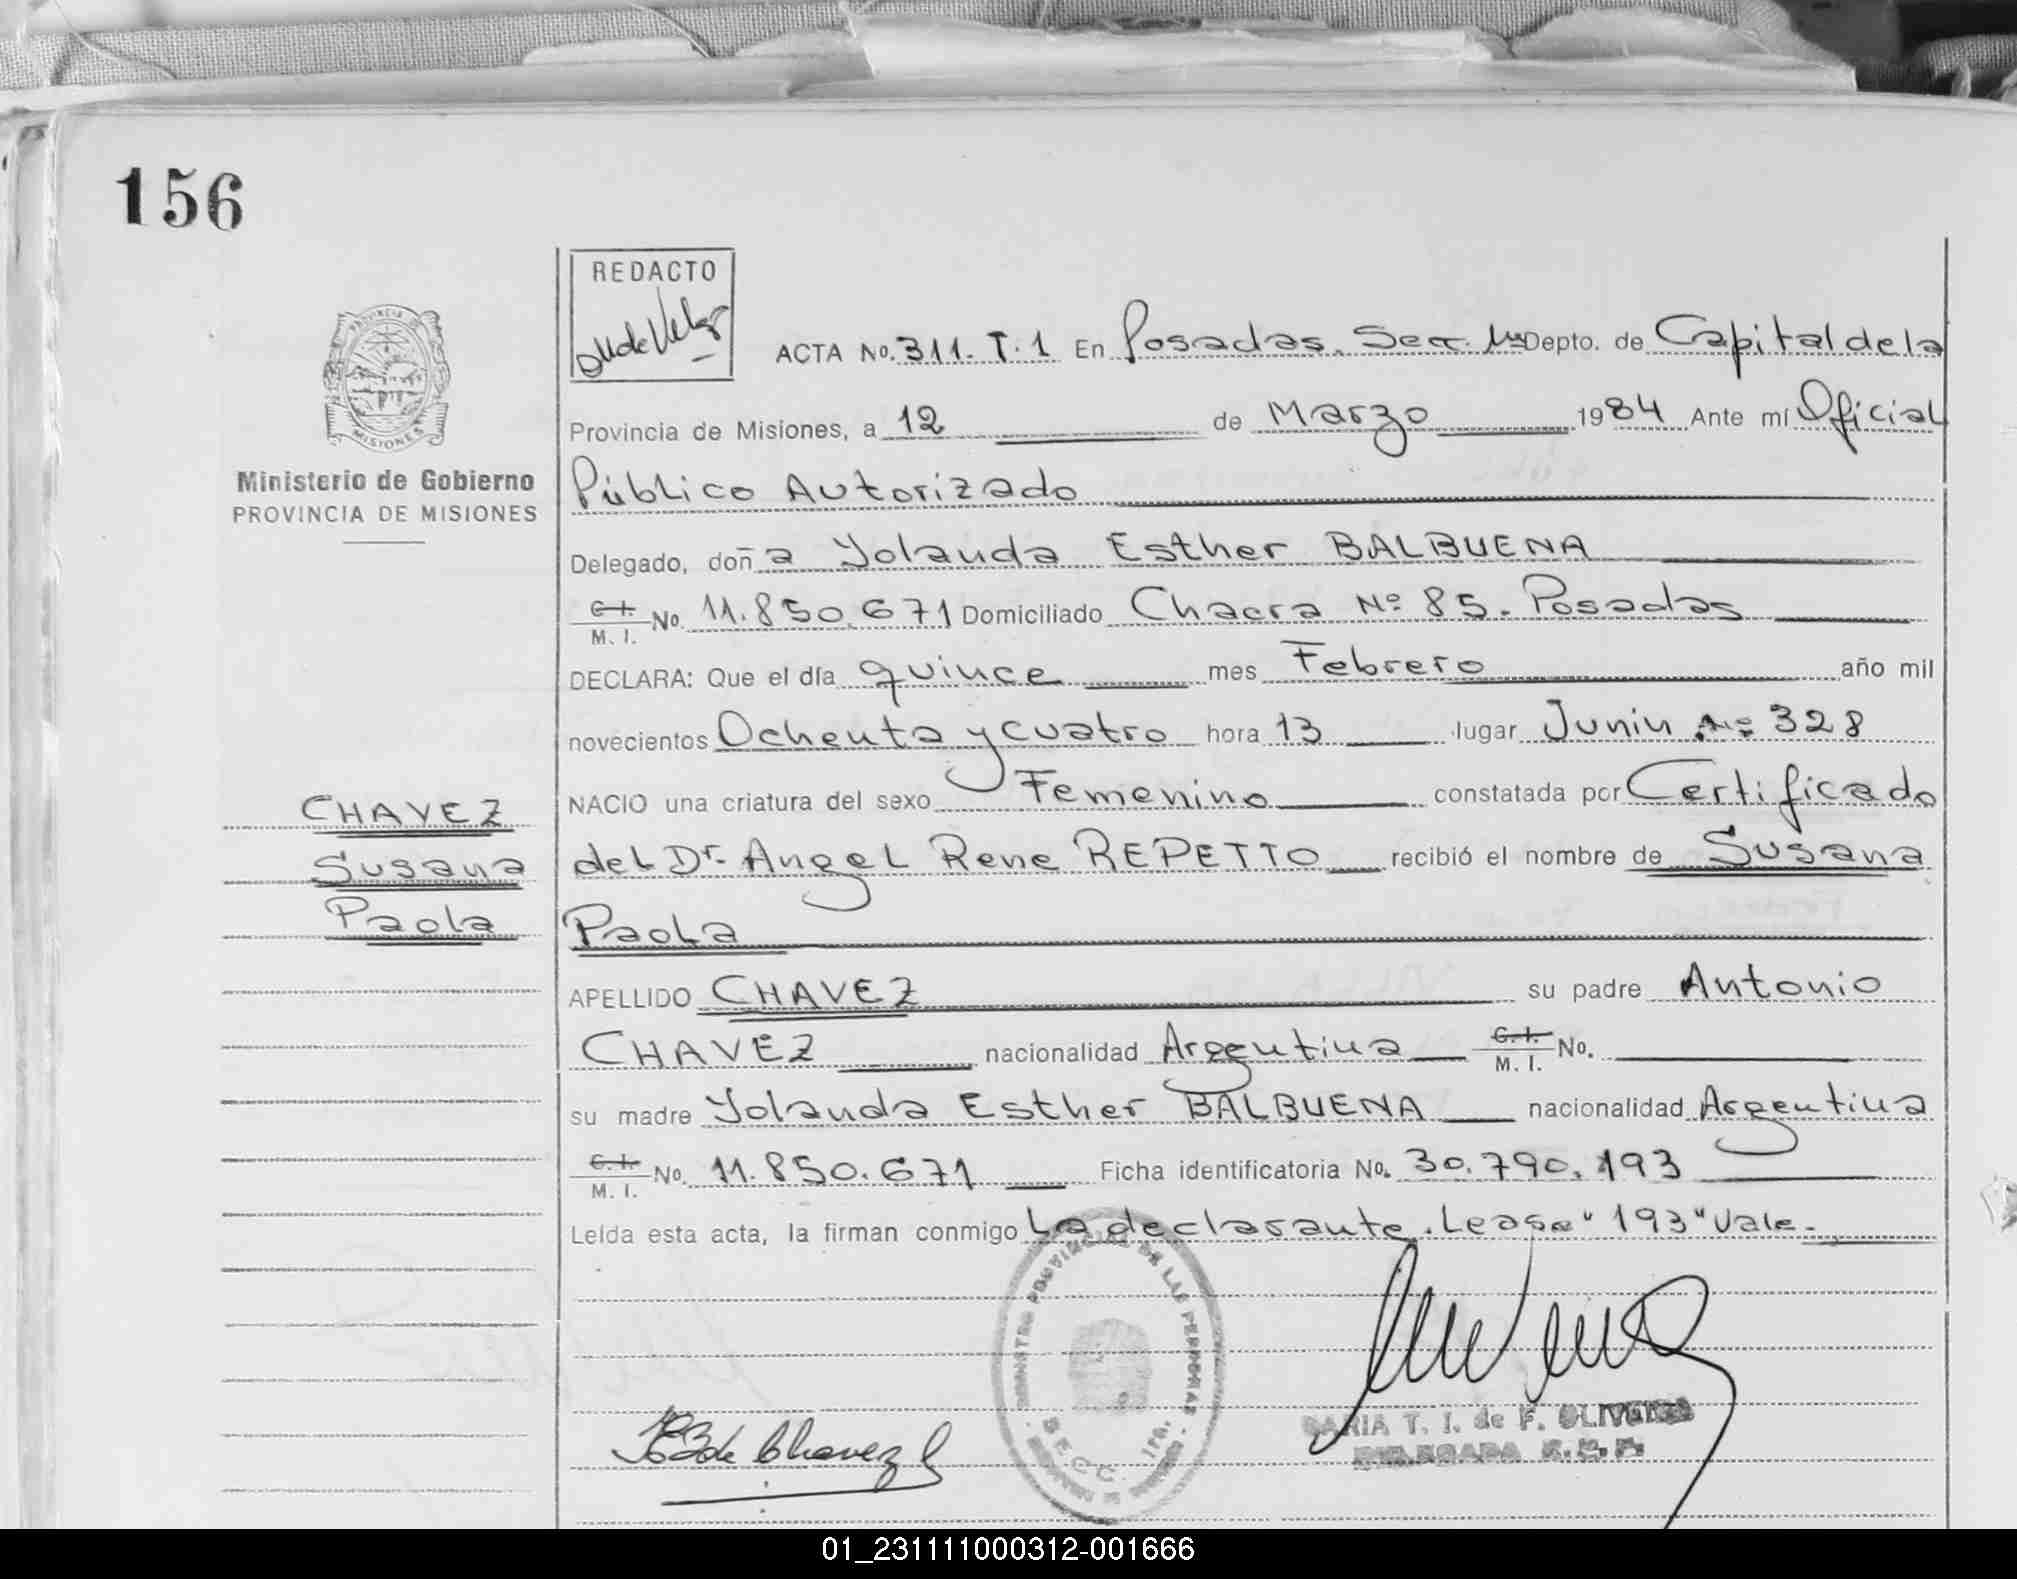 156
REDACTO
ACTA No. 311. T. 1 En Posadas. Secc. 1ra Depto. de Capital de la
Provincia de Misiones, a 12 de Marzo 1984 Ante mí Oficial
Público Autorizado
Delegado, doña Yolanda Esther BALBUENA
C. I. M. I. No. 11.850.671 Domiciliado Chacra Nº 85. Posadas
DECLARA: Que el día quince mes Febrero año mil
novecientos Ochenta y cuatro hora 13 lugar Junin Nº 328
NACIO una criatura del sexo Femenino constatada por Certificado
del Dr. Angel Rene REPETTO recibió el nombre de Susana
Paola
APELLIDO CHAVEZ su padre Antonio
CHAVEZ nacionalidad Argentina C. I. M. I. No.
su madre Yolanda Esther BALBUENA nacionalidad Argentina
C. I. M. I. No. 11.850.671 Ficha identificatoria No. 30.790.193
Leída esta acta, la firman conmigo La declarante. Lease "193" Vale.
PROVINCIA DE
MISIONES
Ministerio de Gobierno
PROVINCIA DE MISIONES
CHAVEZ
Susana
Paola
REGISTRO PROVINCIAL DE LAS PERSONAS
SECC. 1RA.
de Chavez
T. I. de F. OLIVEIRA
DELEGADA
01_231111000312-001666